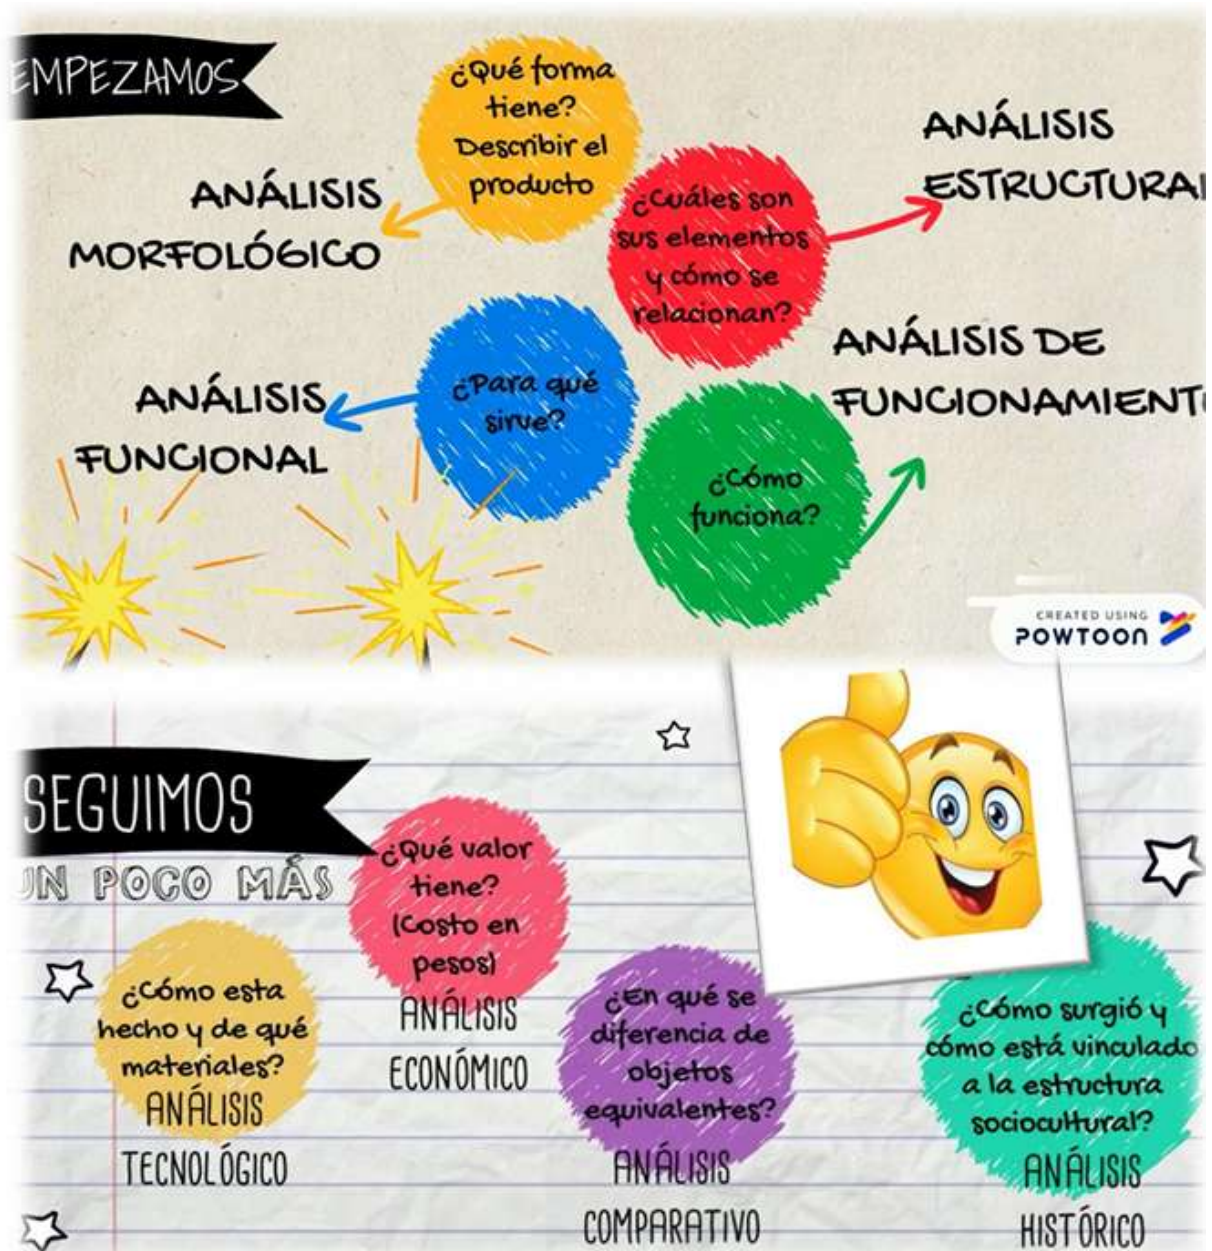 EMPEZAMOS
¿Qué forma
tiene?
Describir el
producto
ANÁLISIS
MORFOLÓGICO
¿Cuáles son
sus elementos
y cómo se
relacionan?
ANÁLISIS
ESTRUCTURAL
¿Para qué
sirve?
ANÁLISIS
FUNCIONAL
¿Cómo
funciona?
ANÁLISIS DE
FUNCIONAMIENTO
CREATED USING
POWTOON
SEGUIMOS
UN POCO MÁS
¿Cómo esta
hecho y de qué
materiales?
ANÁLISIS
TECNOLÓGICO
¿Qué valor
tiene?
(Costo en
pesos)
ANÁLISIS
ECONÓMICO
¿En qué se
diferencia de
objetos
equivalentes?
ANÁLISIS
COMPARATIVO
¿Cómo surgió y
cómo está vinculado
a la estructura
sociocultural?
ANÁLISIS
HISTÓRICO